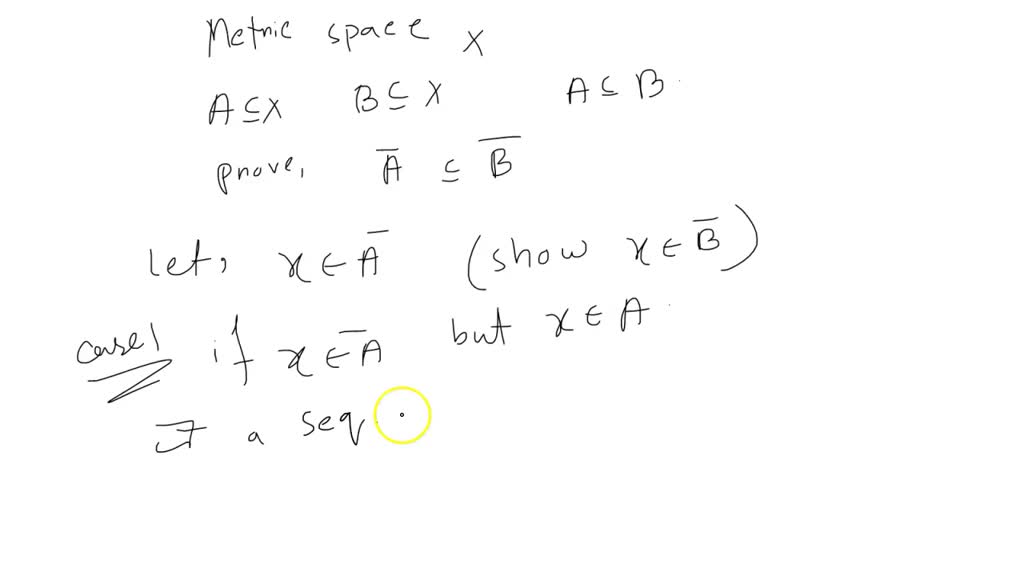 Metric space X
A ⊆ X B ⊆ X A ⊆ B.
prove, A̅ ⊆ B̅
let, x ∈ A̅ (show x ∈ B̅)
case 1 if x ∈ A̅ but x ∈ A.
∃ a seq